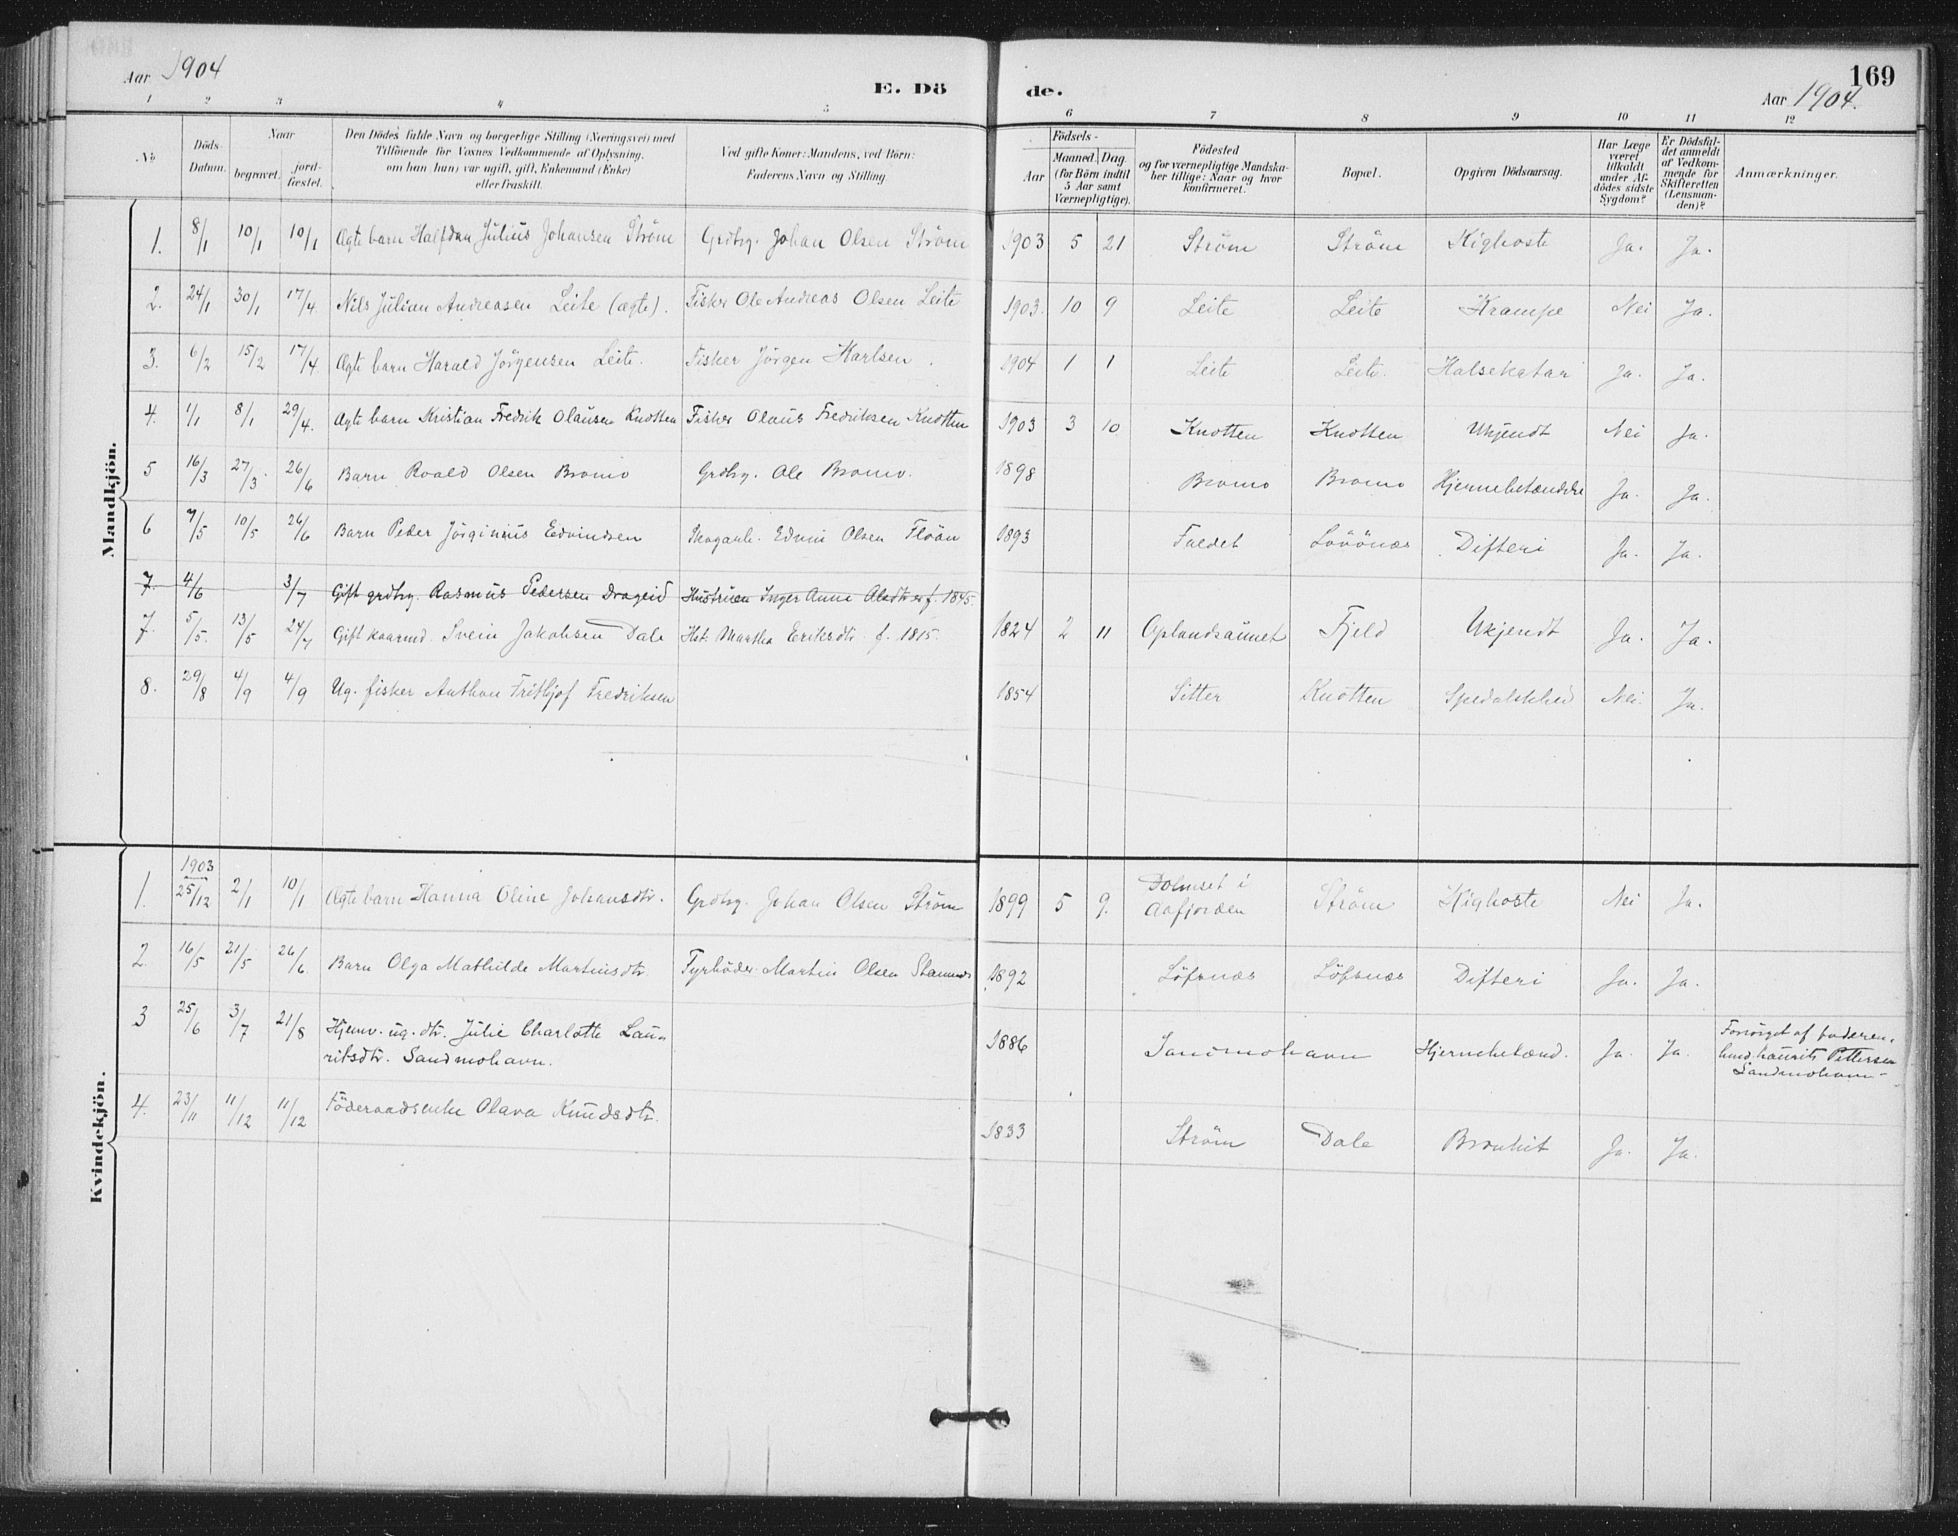 Aar 1904
E. Dö
de.
Aar 1904.
169
1 2 3 4 5 6 7 8 9 10 11 12
No
Döds-
Datum.
Naar
begravet.
jord-
fæstet.
Den Dödes fulde Navn og borgerlige Stilling (Næringsvei) med
Tilföiende for Voxnes Vedkommende af Oplysning,
om han (hun) var ugift, gift, Enkemand (Enke)
eller fraskilt.
Ved gifte Koner: Mandens, ved Börn:
Faderens Navn og Stilling
Födsels-
Aar
Maaned. Dag
(for Börn indtil
5 Aar samt
Værnepligtige).
Födested
og for værnepligtige Mandska-
ber tillige: Naar og hvor
konfirmeret.
Bopæl.
Opgiven Dödsaarsag.
Har Læge
været
tilkaldt
under Af-
dödes sidste
Sygdom?
Er Dödsfal-
det anmeldt
af Vedkom-
mende for
Skifteretten
(Lensman-
den)?
Anmærkninger.
Mandkjön.
1. 8/1 10/1 10/1 Ægte barn Halfdan Julius Johansen Strøm Grdbrg. Johan Olsen Strøm 1903 5 21 Strøm Strøm Kighoste Ja. Ja.
2. 24/1 30/1 17/4 Nils Julian Andreasen Leite (ægte). Fisker Ole Andreas Olsen Leite 1903. 10 9 Leite Leite Krampe Nei Ja.
3. 6/2 15/2 17/4 Ægte barn Harald Jörgensen Leite. Fisker Jörgen Karlsen 1904 1 1 Leite Leite Halsekatar Ja. Ja.
4. 1/1 8/1 29/4. Ægte barn Kristian Fredrik Olausen Knotten Fisker Olaus Fredriksen Knotten 1903 3 10 Knotten Knotten Ukjendt Nei Ja.
5 16/3 27/3 26/6 Barn Roald Olsen Bromo Grdbrg. Ole Bromo. 1898 Bromo Bromo Hjernebetændelse Ja. Ja.
6 7/5 10/5 26/6 Barn Peder Jörginius Edvindsen Skogarb. Edvin Olsen Flöan 1893 Faldet Difteri Ja. Ja.
7. 4/6 3/7 Gift grdbrg. Rasmus Pedersen Drageid Hustruen Inger Anne Olsdtr f. 1845.
7. 5/5. 13/5 24/7 Gift kaarmd. Svein Jakobsen Dale Hst. Martha Eriksdtr. f. 1815. 1824 2 11 Oplandsaunet Fjeld Ukjendt Ja. Ja.
8. 29/8 4/9 4/9 Ug. fisker Anthon Frithjof Fredriksen 1854 Sitter Knotten Spedalskhed Nei. Ja.
Kvindekjön.
1903
1. 25/12 2/1 10/1 Ægte barn Hanna Oline Johansdtr. Grdbrg. Johan Olsen Strøm 1899 5 9. Dolmset i
Aafjorden Strøm Kighoste Nei Ja.
2. 16/5 21/5 26/6 Barn Olga Mathilde Martinsdtr. Fyrböder Martin Olsen 1892 Löfsnæs Löfsnæs Difteri Ja. Ja.
3 25/6 3/7 21/8 Hjemv. ug. dtr. Julie Charlotte Lau-
ritsdtr. Sandmohavn. 1886 Sandmohavn Hjernebetænd. Ja. Ja. Forsörget af faderen,
Laurits Pettersen
Sandmohavn-
4. 23/11 11/12 11/12 Föderaadsenke Olava Knudsdtr. 1833 Strøm Dale Bronkit Ja. Ja.